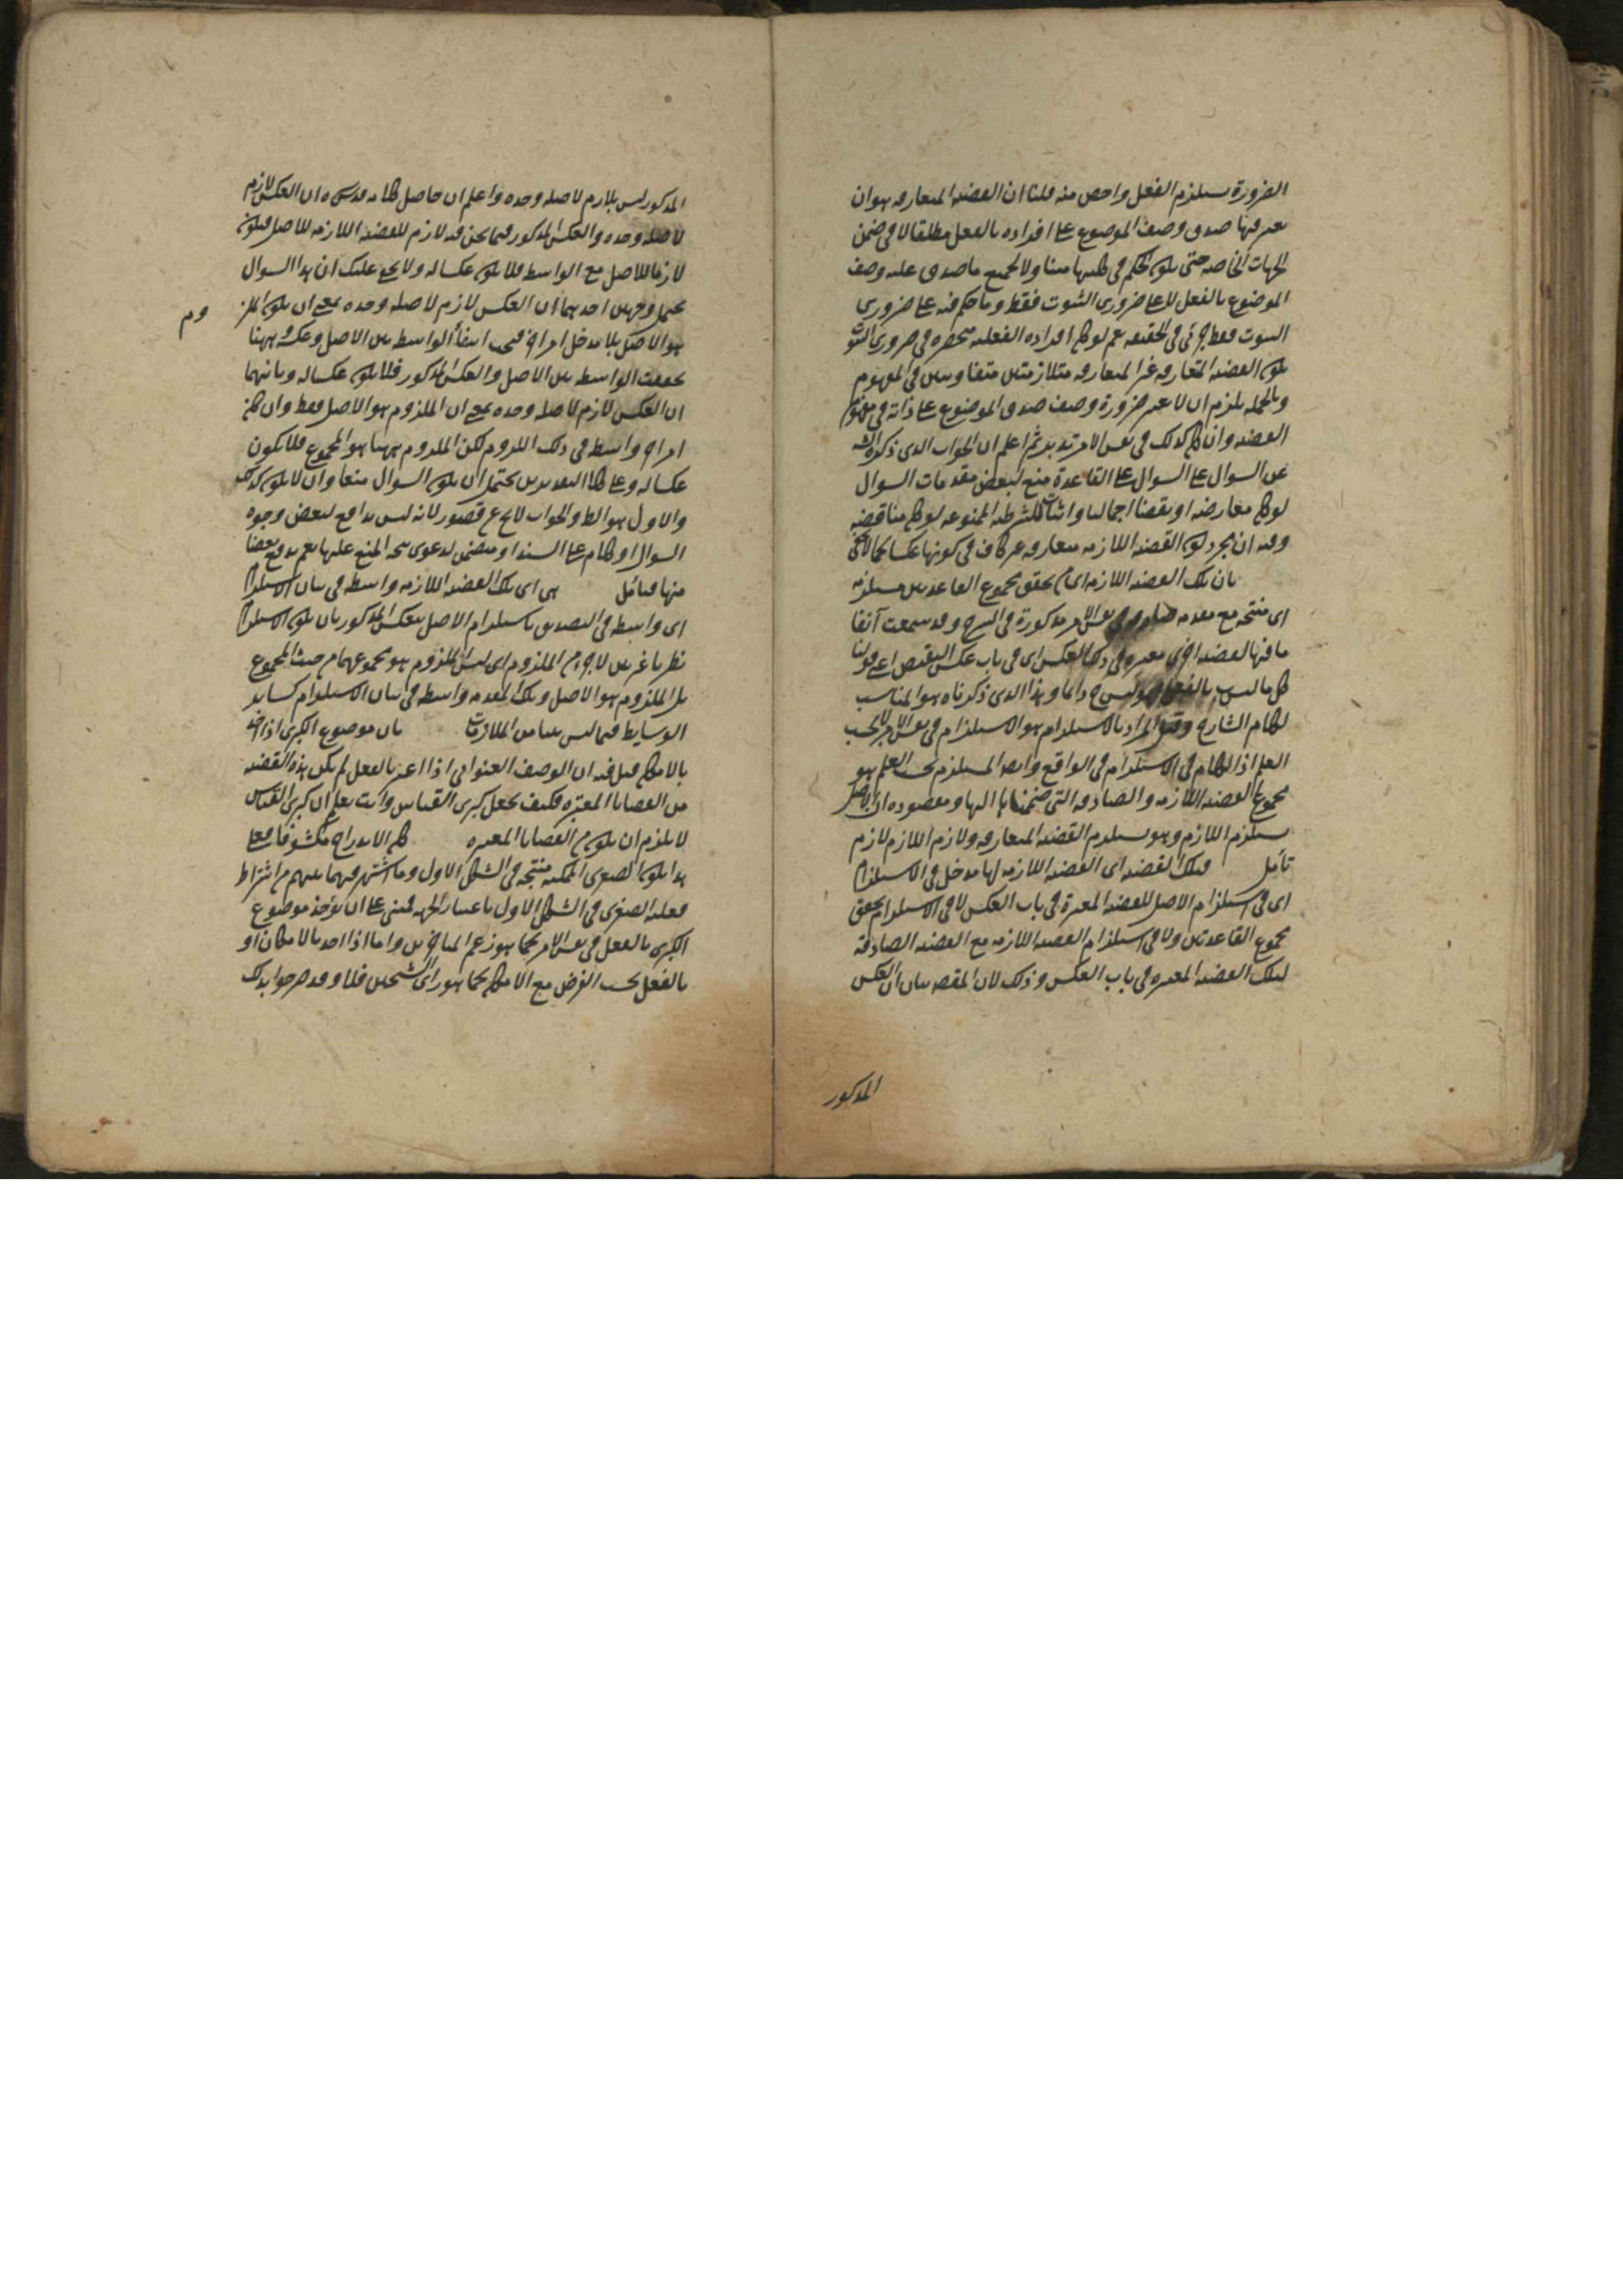 الضرورة يستلزم الفعل واخص منه قلنا ان القضية المتعارفه هو ان
يعتبر فيها صدق وصف الموضوع على افراده بالفعل مطلقا لا فى ضمن
الجهات الخاصه حتى يكون الحكم فى كليهما مبنيا ولا لجميع ما صدق عليه وصف
الموضوع بالفعل لا على ضرورى الثبوت فقط وما حكم فيه على ضرورى
الثبوت فقط جزئى فى الحقيقه نعم لو كان افراده الفعليه منحصره فى ضرورى الثبوت
يكون القضية المتعارفه غير المتعارفه متلازمتين متفاوتين فى المفهوم
وبالجمله يلزم ان لا يعتبر ضرورة وصف صدق الموضوع على ذاته فى مفهوم
القضيه وان كان كذلك فى نفس الامر تدبر ثم اعلم ان الجواب الذى ذكره الش
عن السوال على السوال على القاعدة منع لبعض مقدمات السوال
لو كان معارضه او نقضا اجماليا واثبات للشرطيه الممنوعه لو كان مناقضه
وفيه ان مجرد كون القضيه اللازمه متعارفه غير كاف فى كونها عكسا كما لا يخفى
بان تلك القضيه اللازمه اى تحقق مجموع القاعدتين مستلزمه
اى منتجه مع مقدمه صادقه فى نفس الامر مذكورة فى الشرح وقد سمعت آنفا
ما فيها لقضيه اخرى معتبره فى ذلك العكس اى فى باب عكس النقيض اعنى قولنا
كل ما ليس ب بالفعل فهو ليس ج دائما وهذا الذى ذكرناه هو المناسب
لكلام الشارح وقيل المراد بالاستلزام هو الاستلزام فى نفس الامر لا بحسب
العلم اذ الكلام فى الاستلزام فى الواقع وايضا المستلزم بحسب العلم هو
مجموع القضيه اللازمه والصادقه التى ضممناها اليها ومقصوده ان الاصل
يستلزم اللازم وهو يستلزم القضيه المتعارفه ولازم اللازم لازم
تأمل فتلك القضيه اى القضيه اللازمه لها مدخل فى الاستلزام
اى فى استلزام الاصل للقضيه المعتبرة فى باب العكس لا فى الاستلزام بتحقق
مجموع القاعدتين ولا فى استلزام القضيه اللازمه مع القضيه الصادقة
لتلك القضيه المعتبره فى باب العكس وذلك لان المقصه بيان ان العكس
المذكور
المذكور ليس بلازم لاصله وحده واعلم ان حاصل كلامه قدس سره ان العكس لازم
لاصله وحده والعكس المذكور فيما نحن فيه لازم للقضيه اللازمه للاصل فيكون
لازما للاصل مع الواسطه فلا يكون عكسا له ولا يخفى عليك ان هذا السوال
يحتمل وجهين احدهما ان العكس لازم لاصله وحده بمعنى ان يكون الملز
وم
هو الاصل بلا مدخل امر اخر فيجب انتفاء الواسطه بين الاصل وعكسه وههنا
تحققت الواسطه بين الاصل والعكس المذكور فلا يكون عكسا له وثانيهما
ان العكس لازم لاصله وحده بمعنى ان الملزوم هو الاصل فقط وان كان
امر اخر واسطه فى ذلك اللزوم لكن الملزوم ههنا هو المجموع فلا يكون
عكسا له وعلى كلا التقديرين يحتمل ان يكون السوال منعا وان لا يكون كذلك
والاول هو الظ والجواب لا يخ عن قصور لانه ليس بدافع لبعض وجوه
السوال او كلام على السند او متضمن لدعوى صحة المنع عليها نعم يدفع بعضا
منها فتأمل هى اى تلك القضيه اللازمه واسطه فى بيان الاستلزام
اى واسطه فى التصديق باستلزام الاصل للعكس المذكور بان يكون الاستلزام
نظريا غير بين لا جزء من الملزوم اى ليس الملزوم هو مجموعهما من حيث المجموع
بل الملزوم هو الاصل وتلك المقدمه واسطه فى بيان الاستلزام كساير
الوسايط فيما ليس بينا من الملازمات بان موضوع الكبرى اذا اخذ
بالامكان قيل فيه ان الوصف العنوانى اذا اعتبر بالفعل لم يكن هذه القضيه
من القضايا المعتبره فكيف يجعل كبرى القياس وانت تعلم ان كبرى القياس
لا يلزم ان يكون من القضايا المعتبره كان الاندراج مكشوفا فعلى
هذا يكون الصغرى الممكنه منتجه فى الشكل الاول وما اشتهر فيما بينهم من اشتراط
فعليه الصغرى فى الشكل الاول باعتبار الجهه فمبنى على ان يؤخذ موضوع
الكبرى بالفعل فى نفس الامر كما هو زعم المتاخرين واما اذا اخذ بالامكان او
بالفعل بحسب الفرض مع الامكان كما هو رأى الشيخين فلا وقد صرحوا بذلك